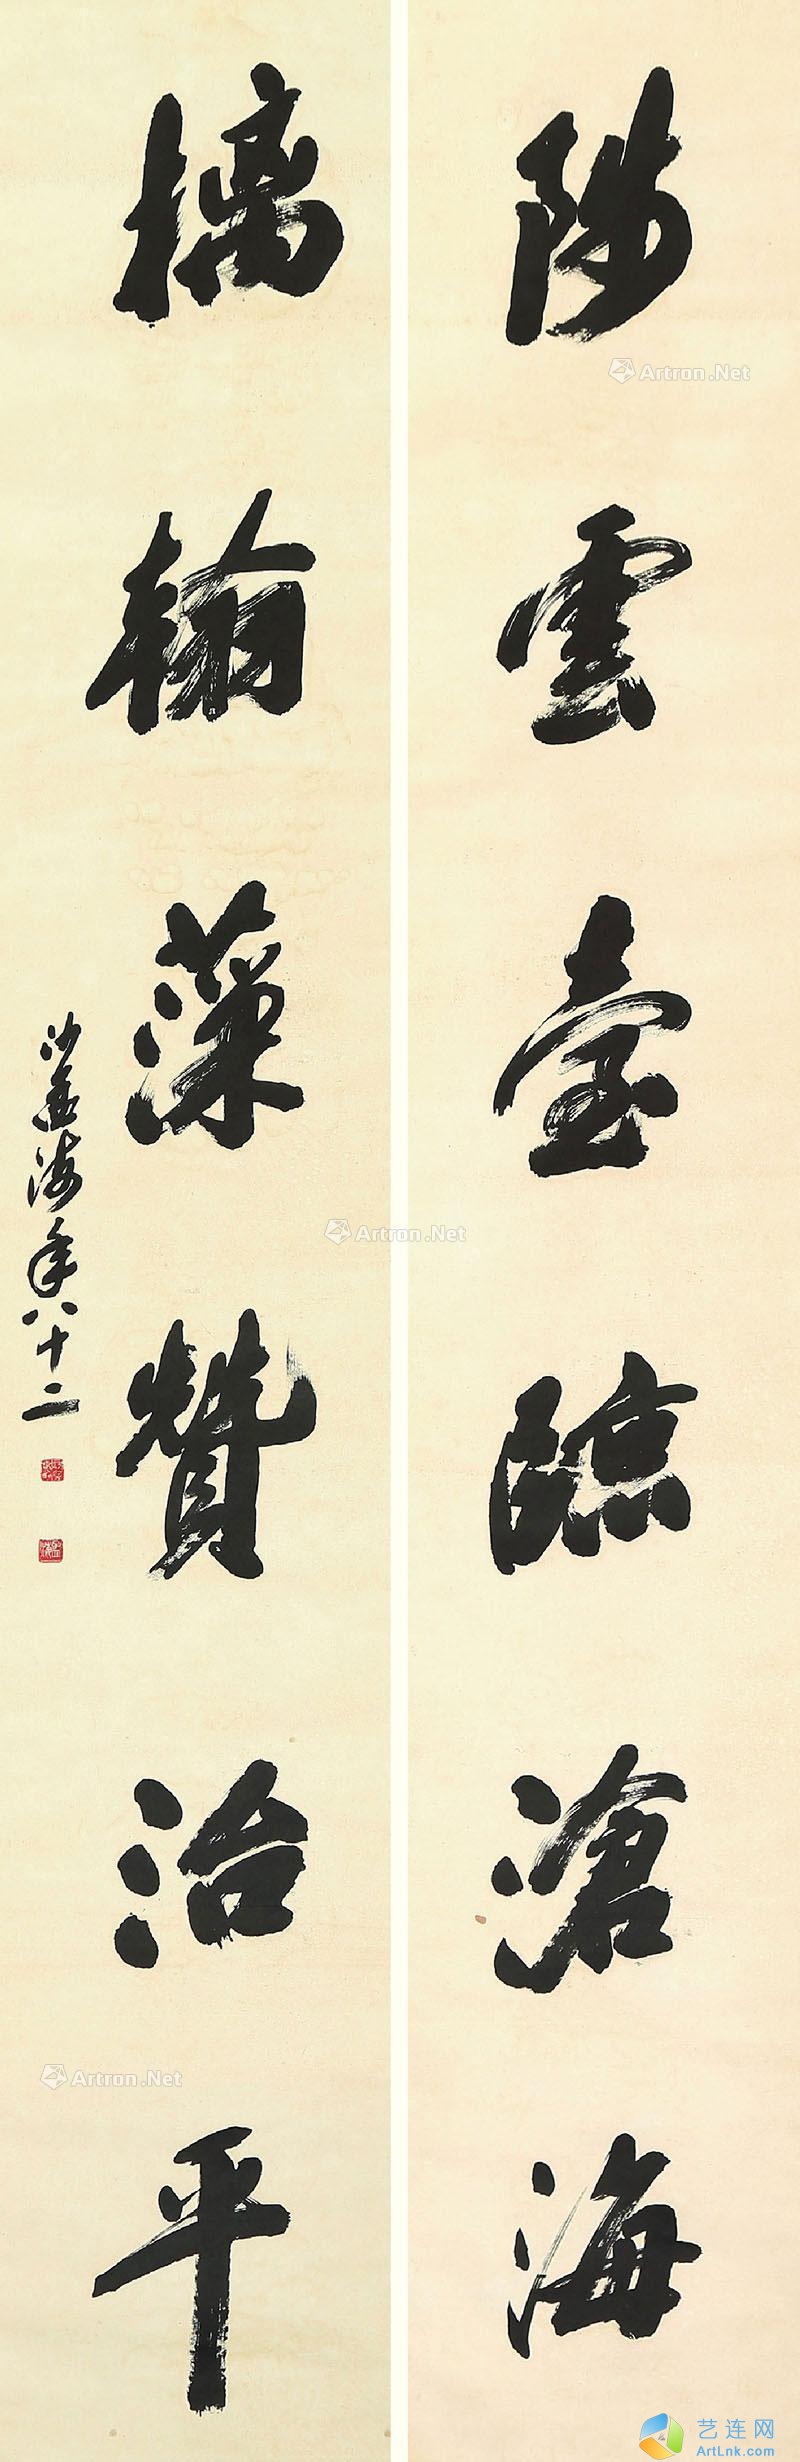 陟雲臺臨滄海
摛翰藻贊治平
沙孟海年八十二
Artron.Net
Artron.Net
Artron.Net
艺连网
ArtLnk.com